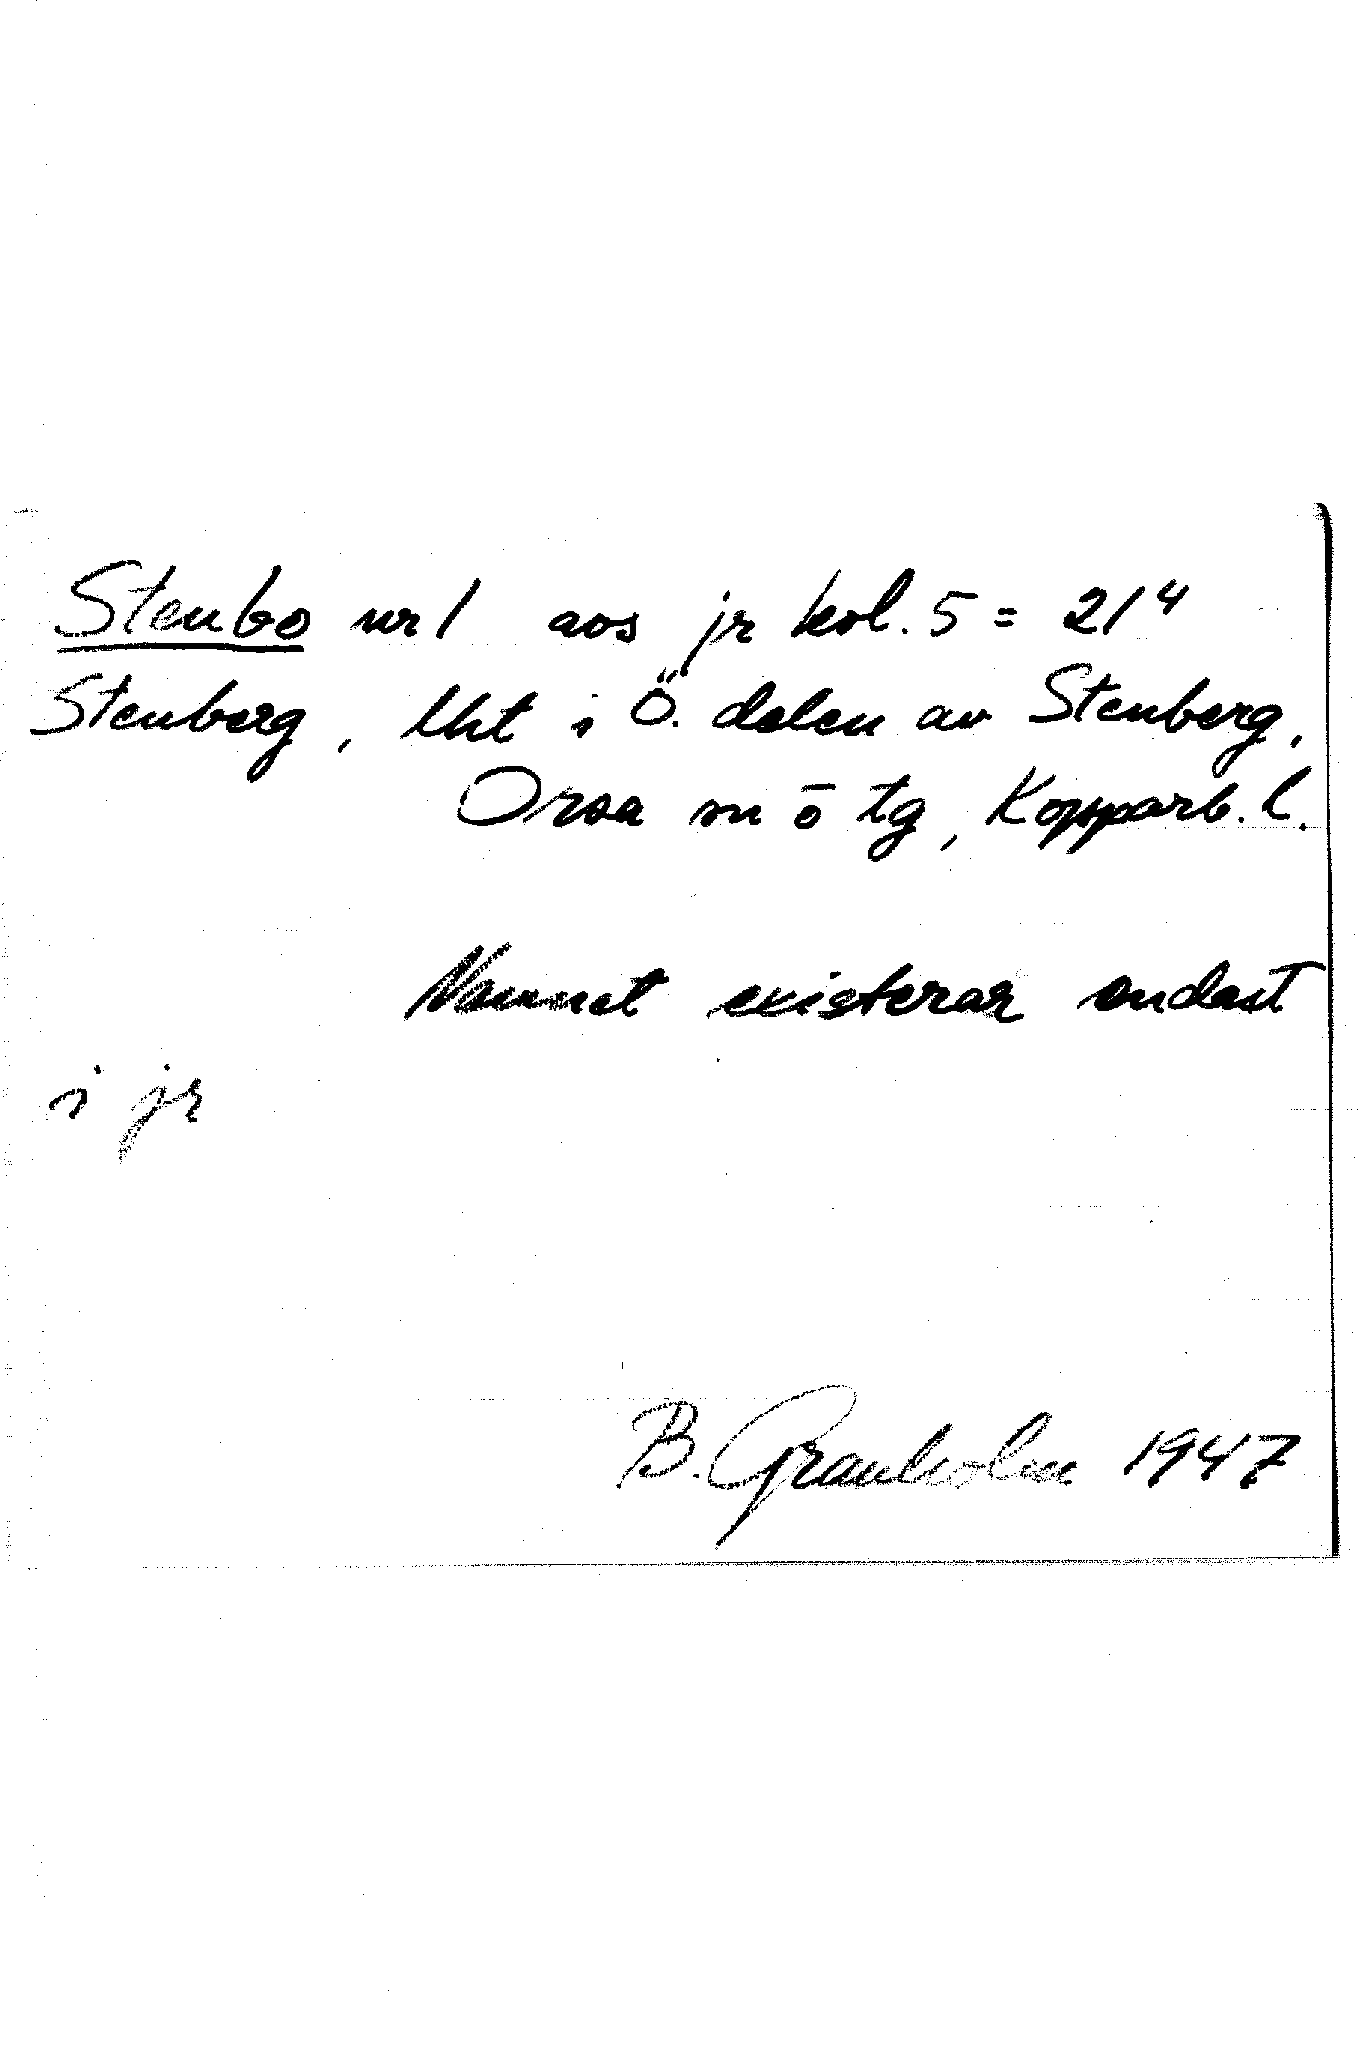 Stenbo nr 1 avs jr kol. 5 = 21⁴
Stenberg, lht i Ö. delen av Stenberg,
Orsa sn o tg, Kopparb. l.
Namnet existerar endast
i jr
B. Granholm 1947